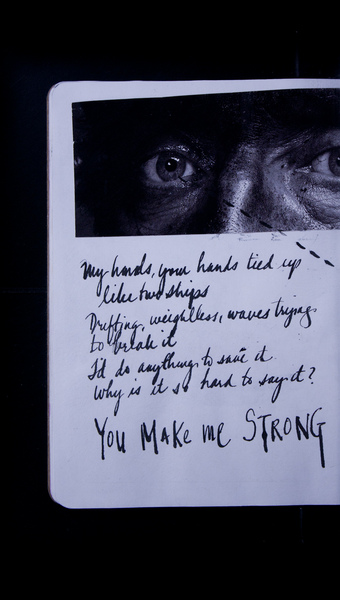 My hands, your hands tied up
like two ships
Drifting, weightless, waves trying
to break it
I'd do anything to save it.
Why is it so hard to say it?
YOU MAKe me STRONG